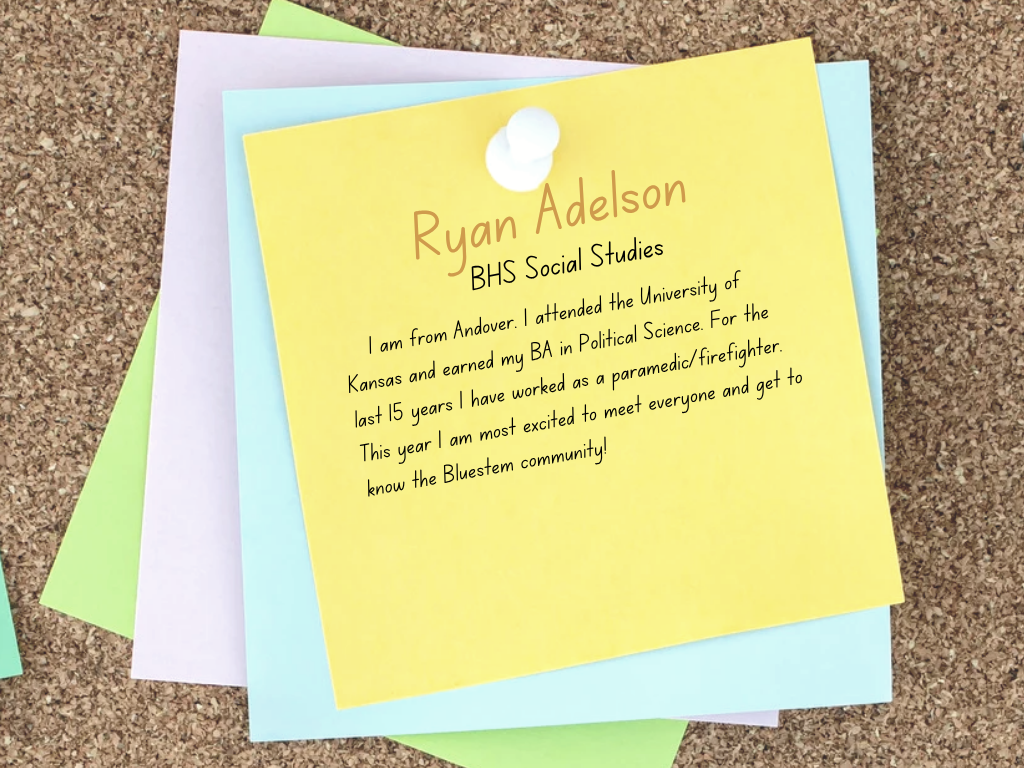 Ryan Adelson
BHS Social Studies
I am from Andover. I attended the University of
Kansas and earned my BA in Political Science. For the
last 15 years I have worked as a paramedic/firefighter.
This year I am most excited to meet everyone and get to
know the Bluestem community!